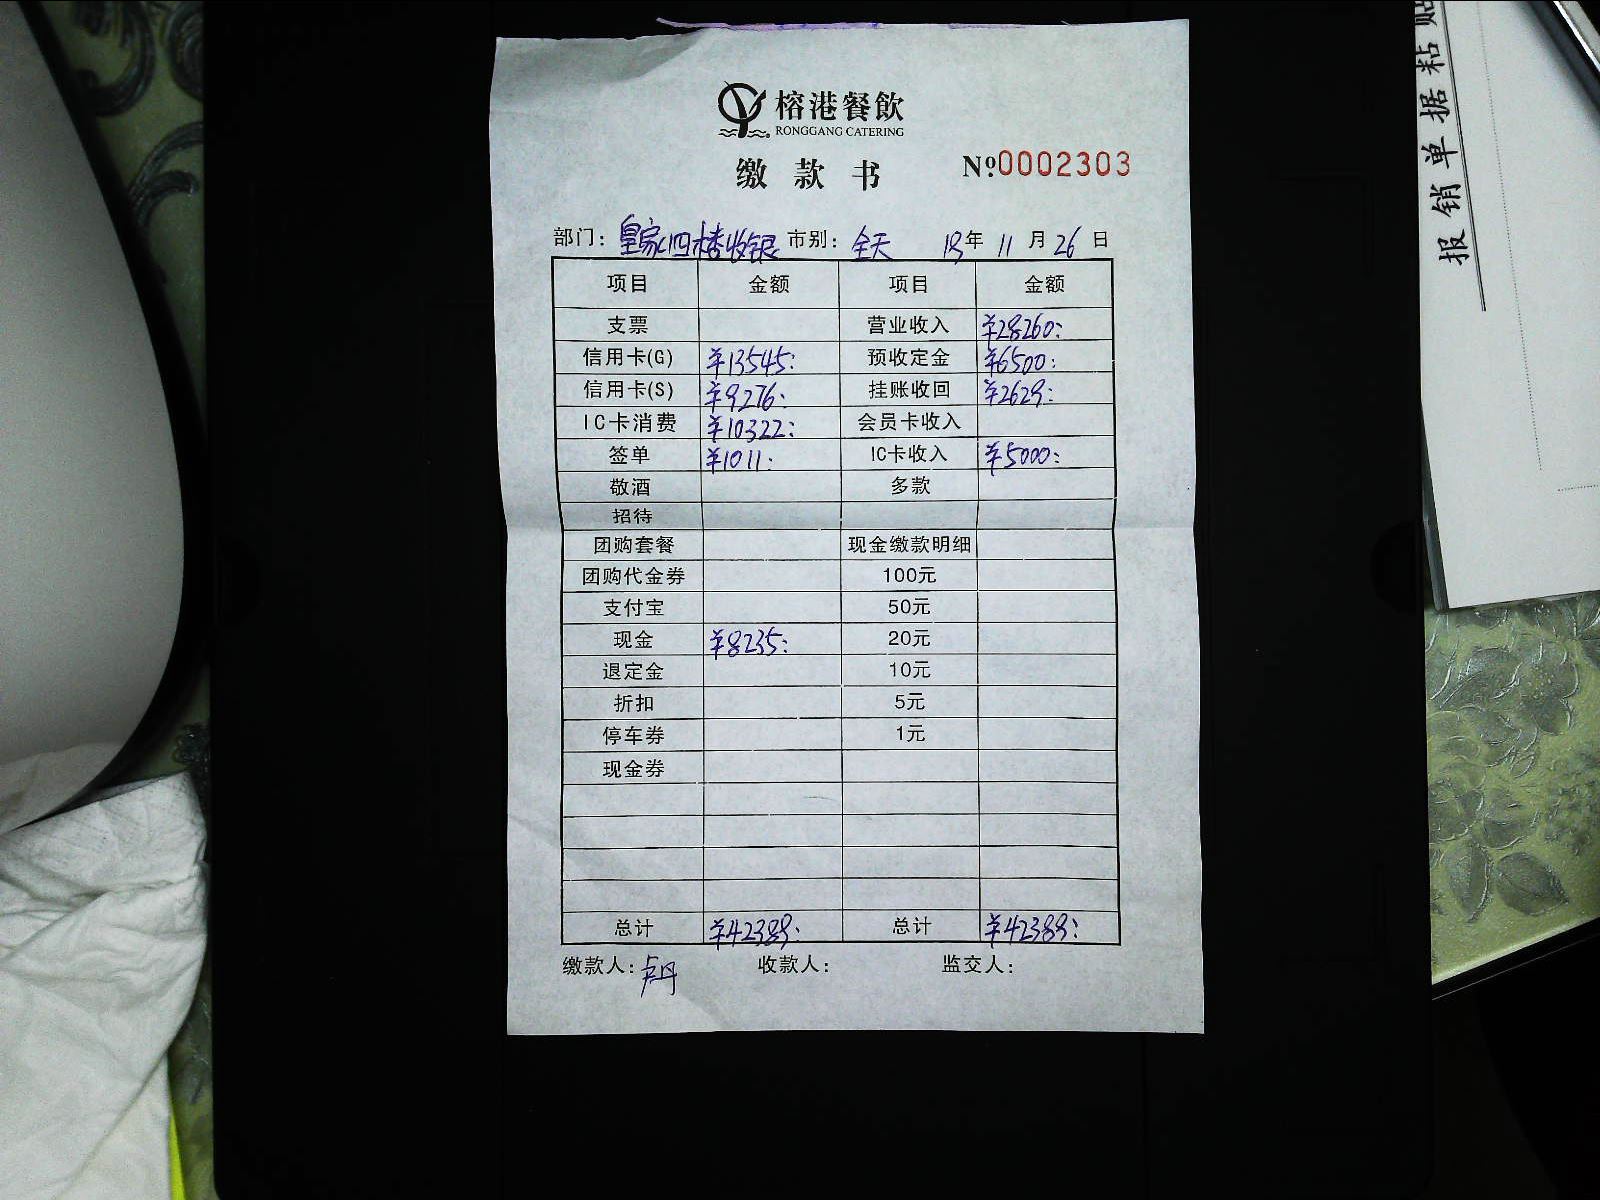 榕港餐飲
RONGGANG CATERING
缴款书 №0002303
部门：皇家四楼收银 市别：全天 18年 11月 26日
项目 金额 项目 金额
支票 营业收入 ¥28260:
信用卡(G) ¥13545: 预收定金 ¥6500:
信用卡(S) ¥9276: 挂账收回 ¥2629:
IC卡消费 ¥10322: 会员卡收入
签单 ¥1011: IC卡收入 ¥5000:
敬酒 多款
招待
团购套餐 现金缴款明细
团购代金券 100元
支付宝 50元
现金 ¥8235: 20元
退定金 10元
折扣 5元
停车券 1元
现金券
总计 ¥42389: 总计 ¥42389:
缴款人：卢丹 收款人： 监交人：
报销单据粘贴